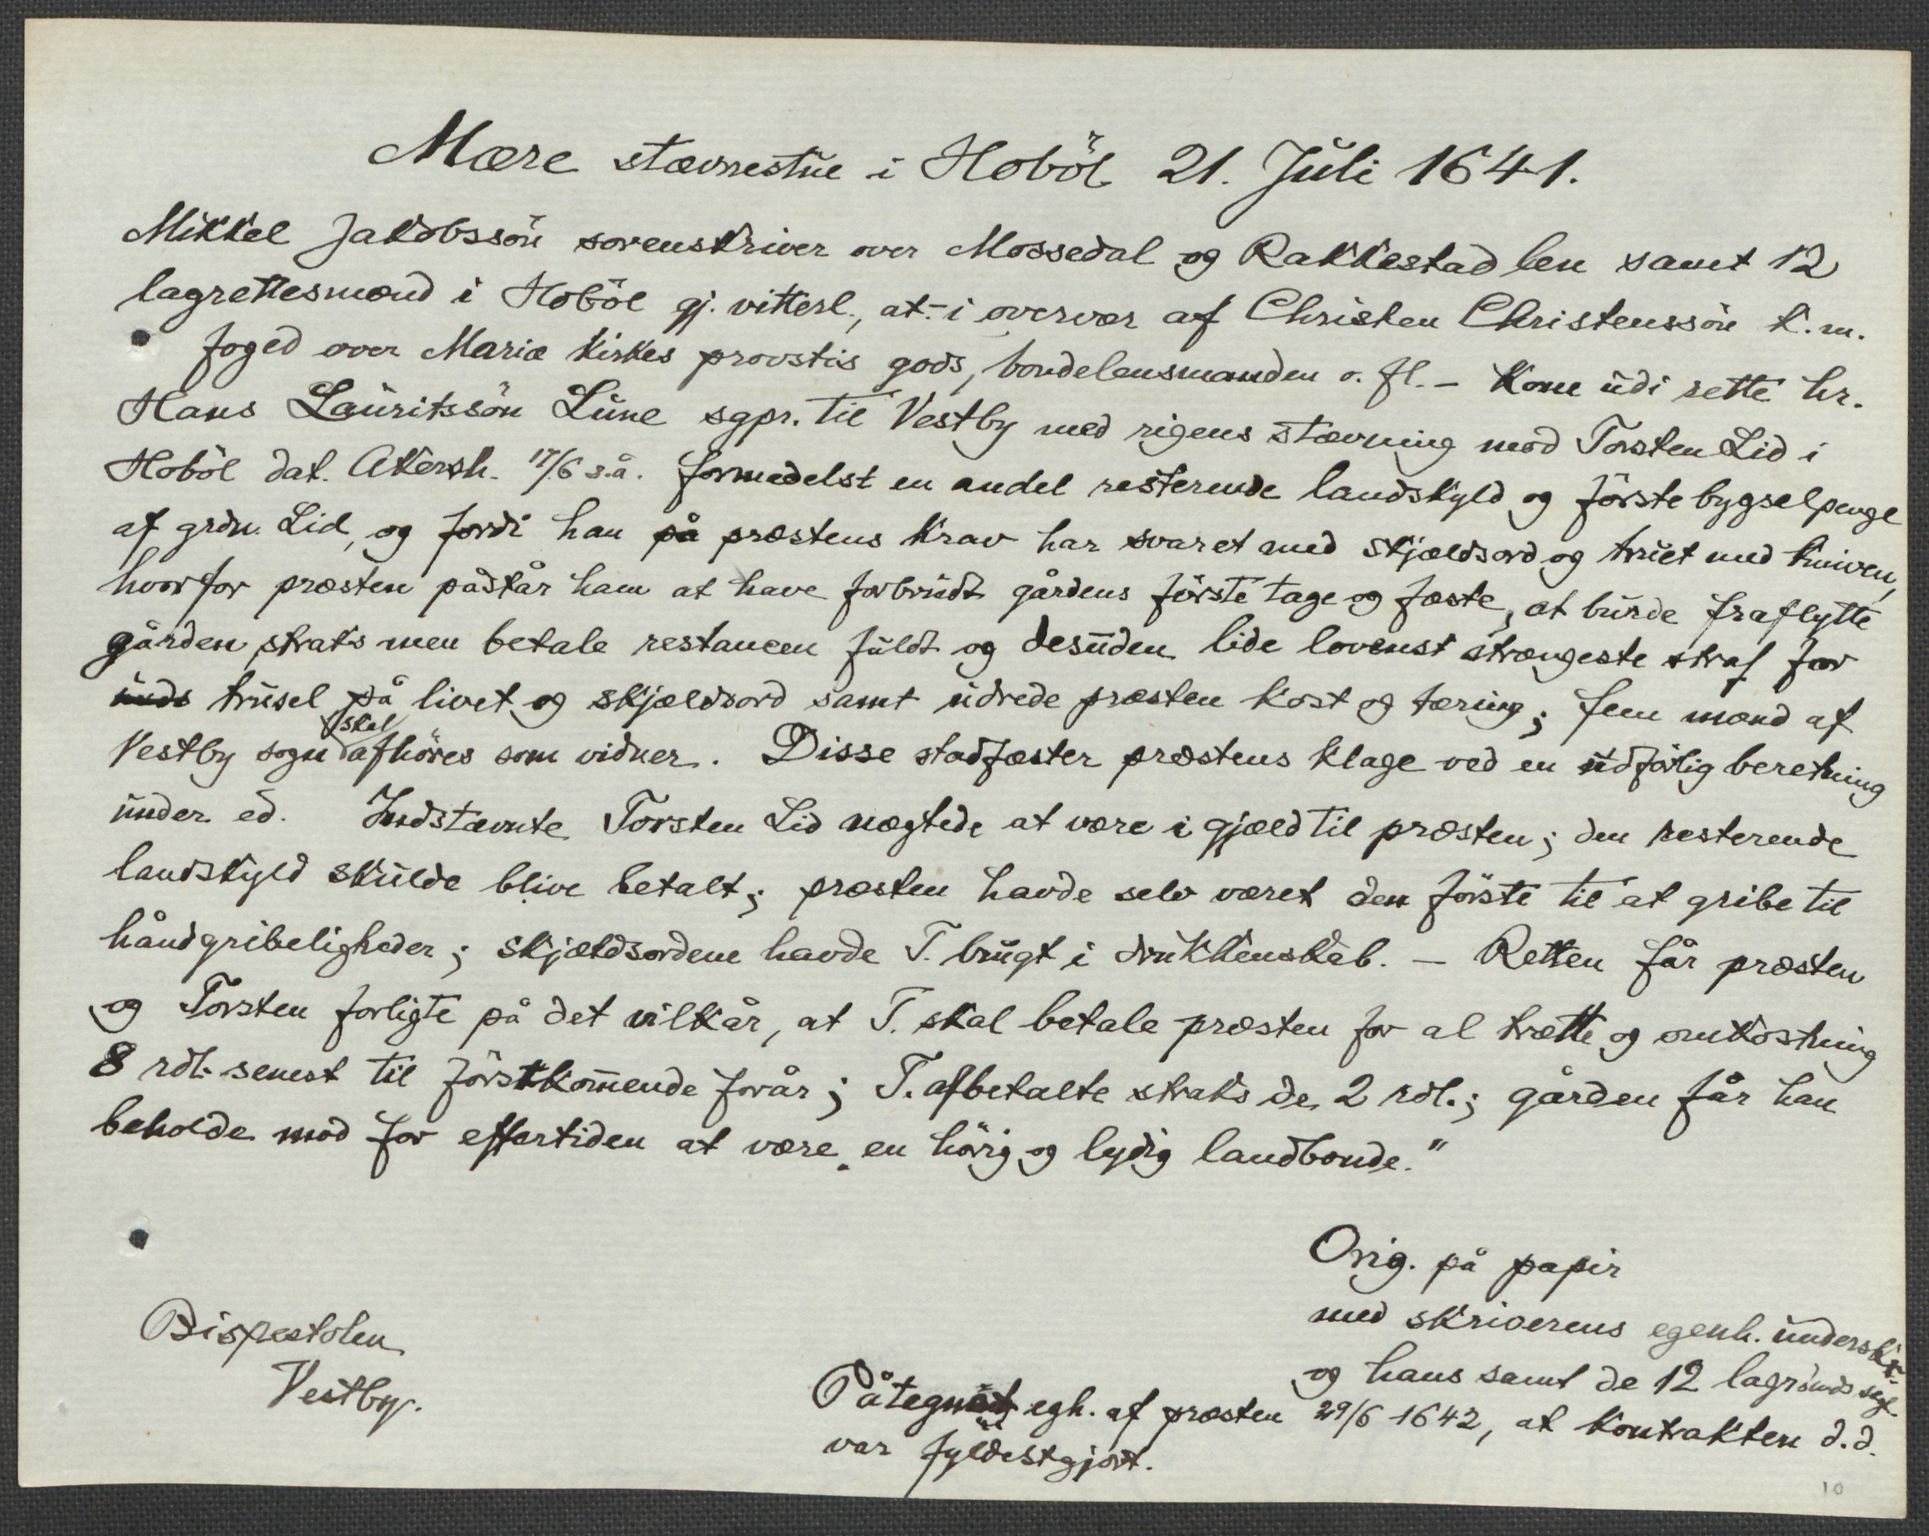 Mære stævnestue i Hoböl 21. Juli 1641.
Mikkel Jakobssön sorenskriver over Mossedal og Rakkestad len samt 12
lagrettesmænd i Hoböl gj. vitterl., at - i overvær af Christen Christenssön k. m.
foged over Mariæ kirkes provstis gods, bondelensmanden o. fl. - kom udi rette hr.
Hans Lauritssön Lune sgpr. til Vestby med rigens stævning mod Torsten Lid i
Hoböl dat. Akersh. 17/6 s.å. formedelst en andel resterende landskyld og förstebygselpenge
af grdn. Lid, og fordi han på præstens krav har svaret med skjældsord og truet med kniven,
hvorfor præsten påstår ham at have forbrudt gårdens förste tage og fæste, at burde fraflytte
gården straks men betale restancen fuldt og desuden lide lovenst strængeste straf for
trusel på livet og skjældsord samt udrede præsten kost og tæring; fem mænd af
Vestby sogn skal afhöres som vidner. Disse stadfæster præstens klage ved en udförlig beretning
under ed. Indstævnte Torsten Lid nægtede at være i gjæld til præsten; den resterende
landskyld skulde blive betalt; præsten havde selv været den förste til at gribe til
håndgribeligheder; skjældsordene havde T. brugt i drukkenskab. - Retten får præsten
og Torsten forligte på det vilkår, at T. skal betale præsten for al trætte og omkostning
8 rdl. senest til förstkom̄ende forår; T. afbetalte straks de 2 rdl.; gården får han
beholde mod for eftertiden at være „en hörig og lydig landbonde."
Orig. på papir
med skriverens egenh. underskr.
og hans samt de 12 lagrmds segl
Bispestolen
Vestby.
Påtegnet egh. af præsten 29/6 1642, at kontrakten d.d.
var fyldestgjort.
10